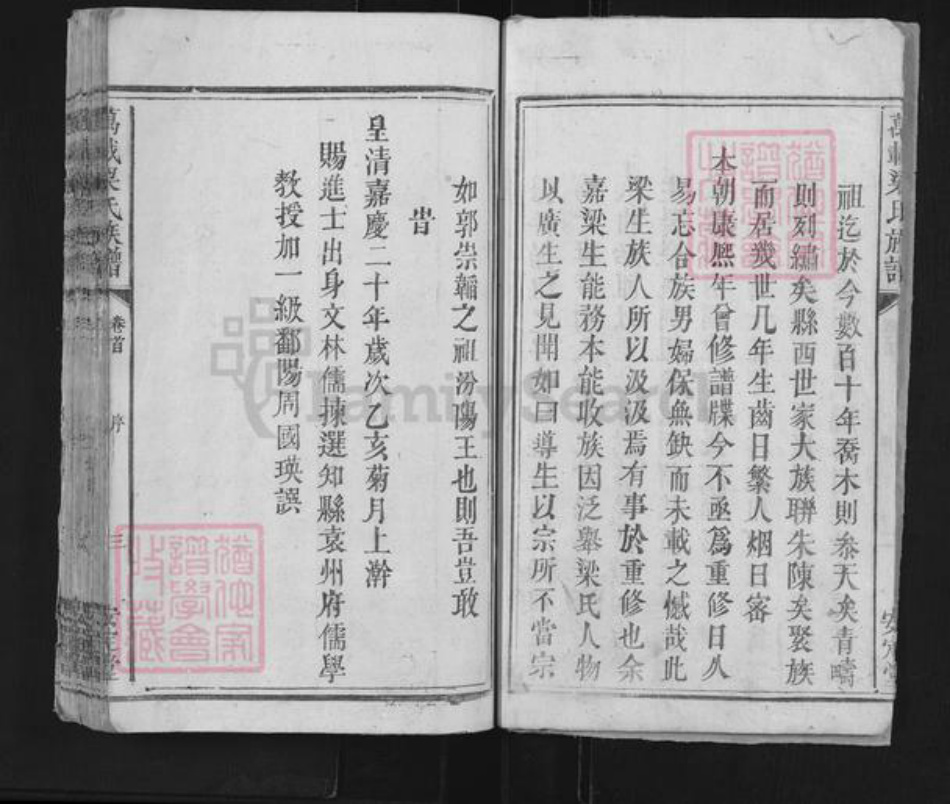 萬載梁氏族譜
祖迄於今數百十年喬木則叅天矣青疇
則列繡矣縣西世家大族聯朱陳矣聚族
而居幾世几年生齒日繁人烟日密
本朝康熙年曾修譜牒今不亟爲重修日久
易忘合族男婦保無缺而未載之憾哉此
梁生族人所以汲汲焉有事於重修也余
嘉梁生能務本能收族因泛舉梁氏人物
以廣生之見聞如曰導生以宗所不當宗
如郭崇韜之祖汾陽王也則吾豈敢
旹
皇清嘉慶二十年歲次乙亥菊月上澣
賜進士出身文林儒揀選知縣袁州府儒學
教授加一級鄱陽周國瑛譔
萬載梁氏族譜
卷首
序
三
安定堂
猶他家
譜學會
收藏
FamilySearch